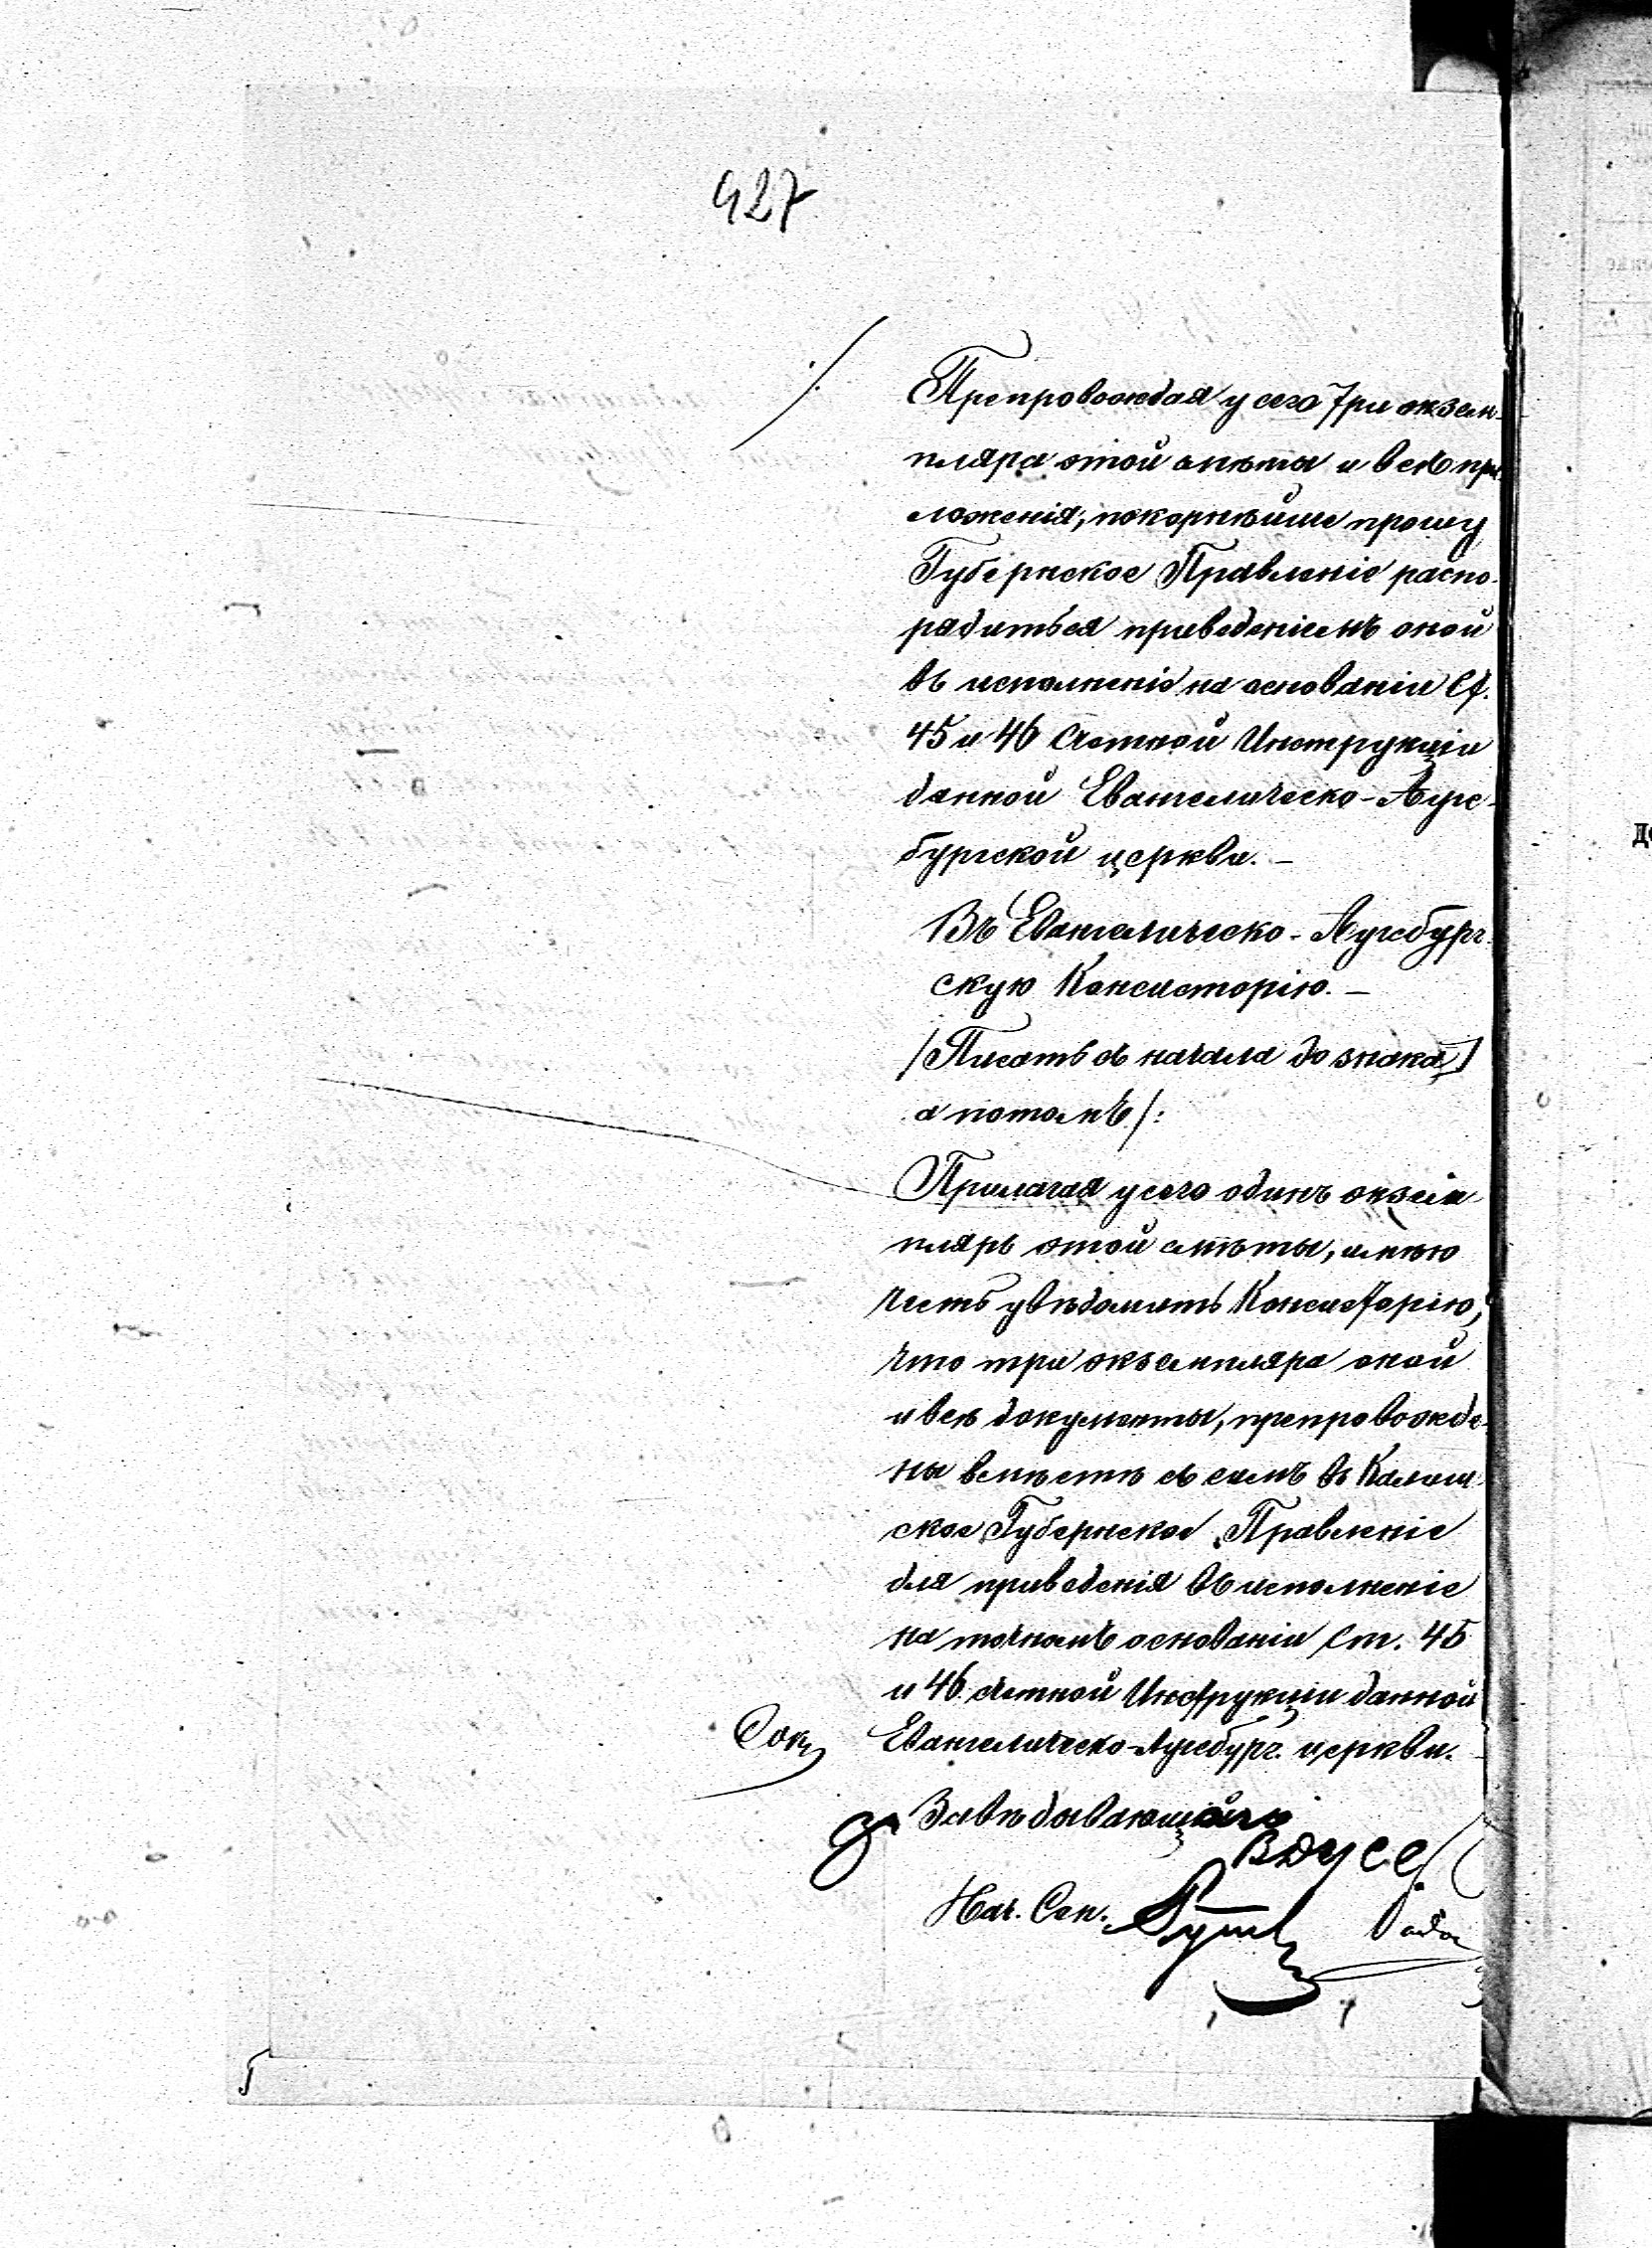 427
Препровождая у сего три экзем-
пляра этой смѣты и всѣ при-
ложенія, покорнѣйше прошу
Губернское Правленіе распо-
рядиться приведеніемъ оной
въ исполненіе на основаніи Ст.
45 и 46 Счетной Инструкціи
данной Евангелическо-Аугс-
бургской церкви. —
Въ Евангелическо-Аугсбург-
скую Консисторію. —
/Писать съ начала до знака]
а потомъ/:
Прилагая у сего одинъ экзем
пляръ этой смѣты, имѣю
честь увѣдомить Консисторію,
что три экземпляра оной
и всѣ документы, препровожде-
ны вмѣстѣ съ симъ въ Калиш-
ское Губернское Правленіе
для приведенія въ исполненіе
на точномъ основаніи Ст. 45
и 46 Счетной Инструкціи данной
Евангелическо-Аугсбург. церкви.
За Завѣдывающаго
Нач. Сек.